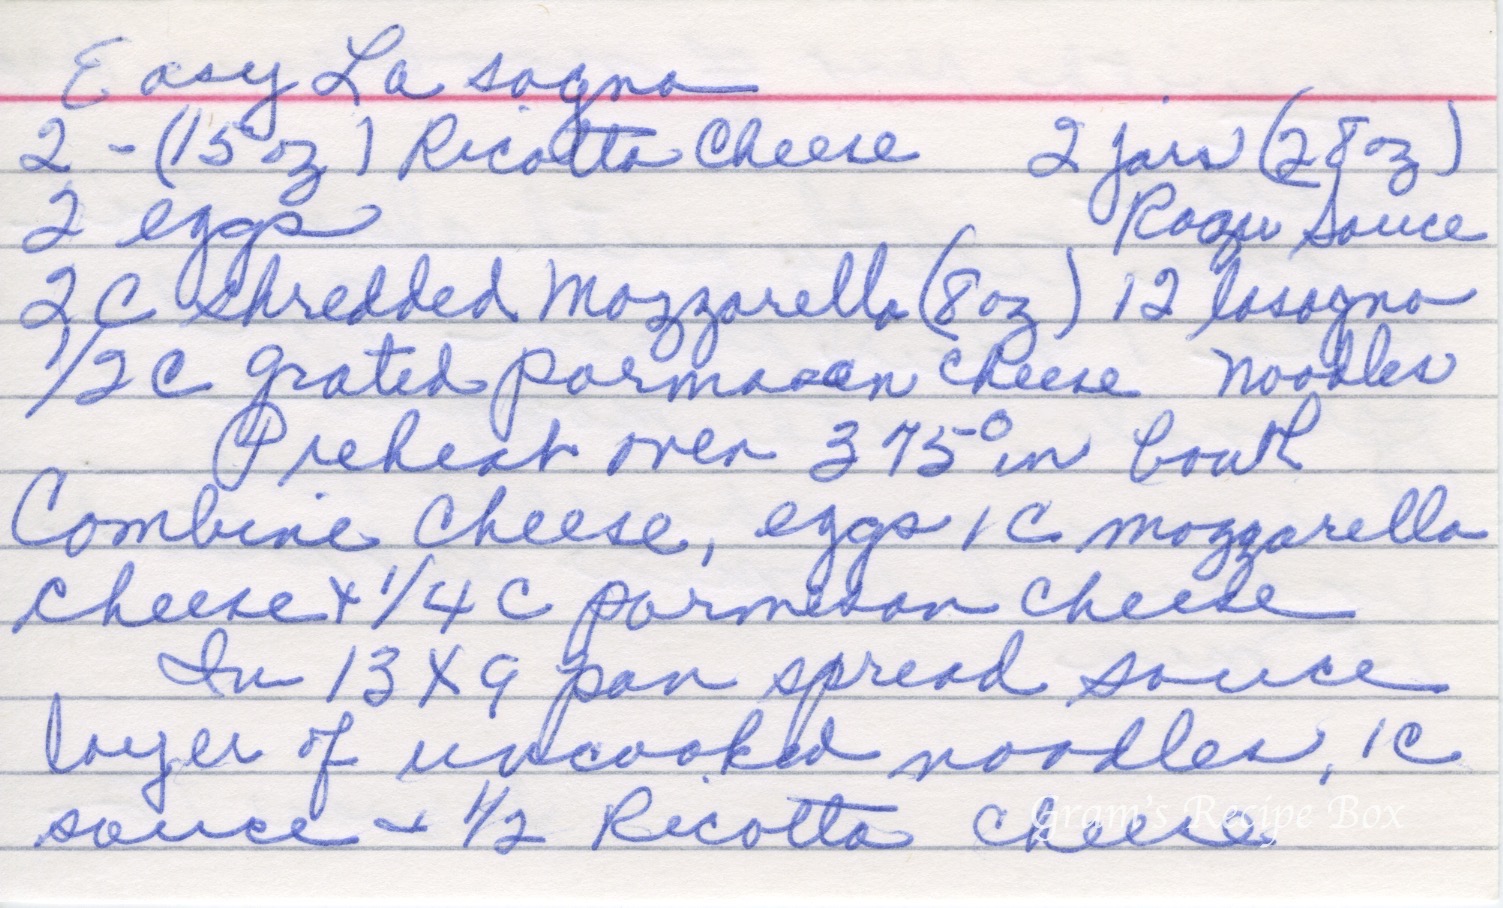 Easy Lasagna
2 - (15 oz) Ricotta Cheese 2 jars (28oz)
2 eggs Ragu Sauce
2 C Shredded Mozzarella (8oz) 12 lasagna
1/2 C grated parmasan cheese noodles
Preheat oven 375° in bowl
Combine Cheese, eggs 1 C mozzarella
cheese + 1/4 C parmesan cheese
In 13 X 9 pan spread sauce
layer of uncooked noodles, 1C
sauce + 1/2 Ricotta cheese
Gram's Recipe Box